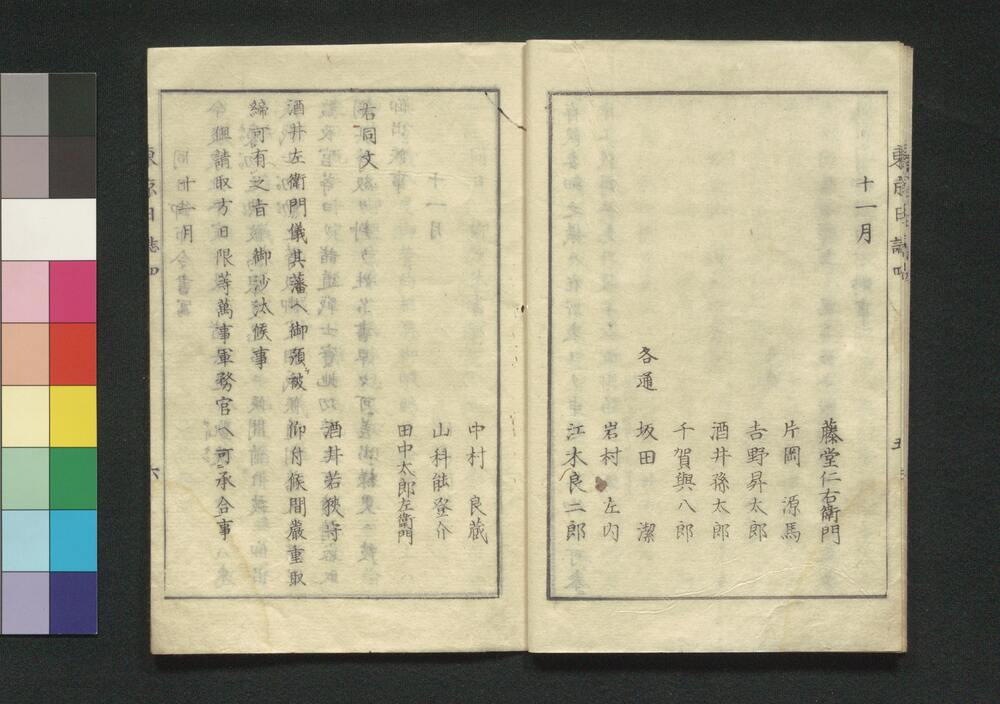 十一月
藤堂仁右衛門
片岡　源馬
吉野昇太郎
酒井孫太郎
千賀與八郎
各通　坂田　潔
岩村　左内
江木良二郎
中村　良蔵
山科能登介
田中太郎左衛門
右同文
酒井若狭守
酒井左衛門儀其藩ヘ御預被　仰付候間嚴重取
締可有之旨　御沙汰候事
今興請取方日限等萬事軍務官ヘ可承合事
十一月
東京日誌四
五
六